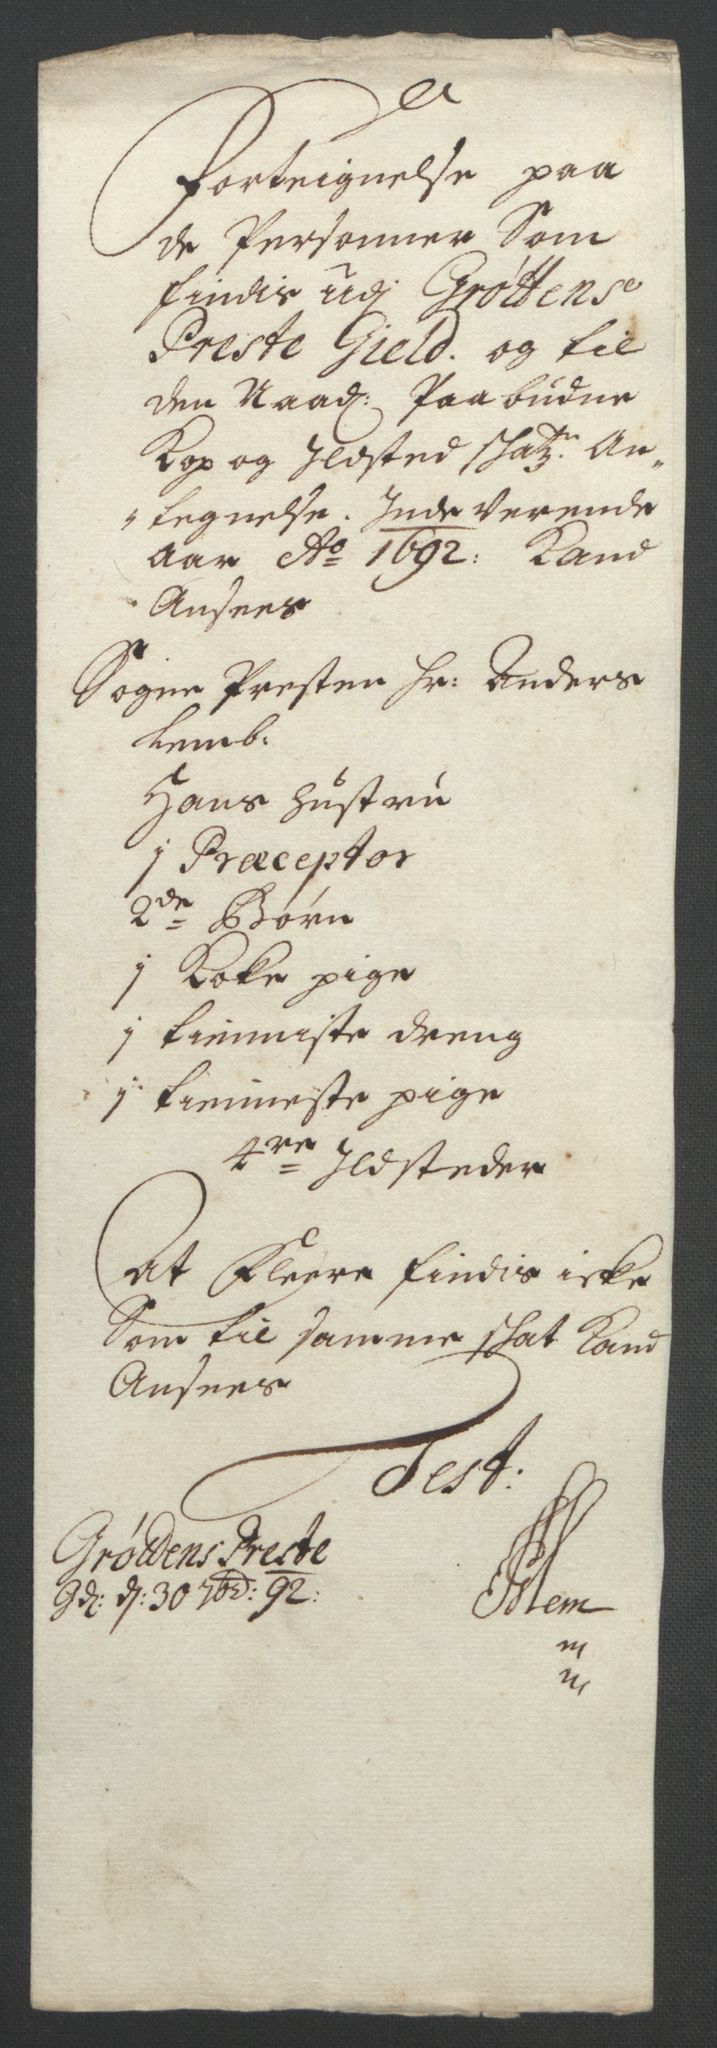 Forteignelse paa
de Personner Som
findis udj Grøttens
Preste Gield. og til
den Naad: Paabudne
Kop og Ildsted schatz. An„
„tegnelse. Inde Verende
Aar Ao 1692: Kand
Ansees
Sogne Presten Hr: Anders
Lemb.
Hans Hustru
1 Præceptor
2de Børn
1 Koke pige
1 tienniste dreng
1 tienneste pige
4re Ildsteder
At Fleere findis icke
Som til samme schat Kand
Ansees
Test:
Grøttens Preste
Gd: d: 30 7bd: 92: